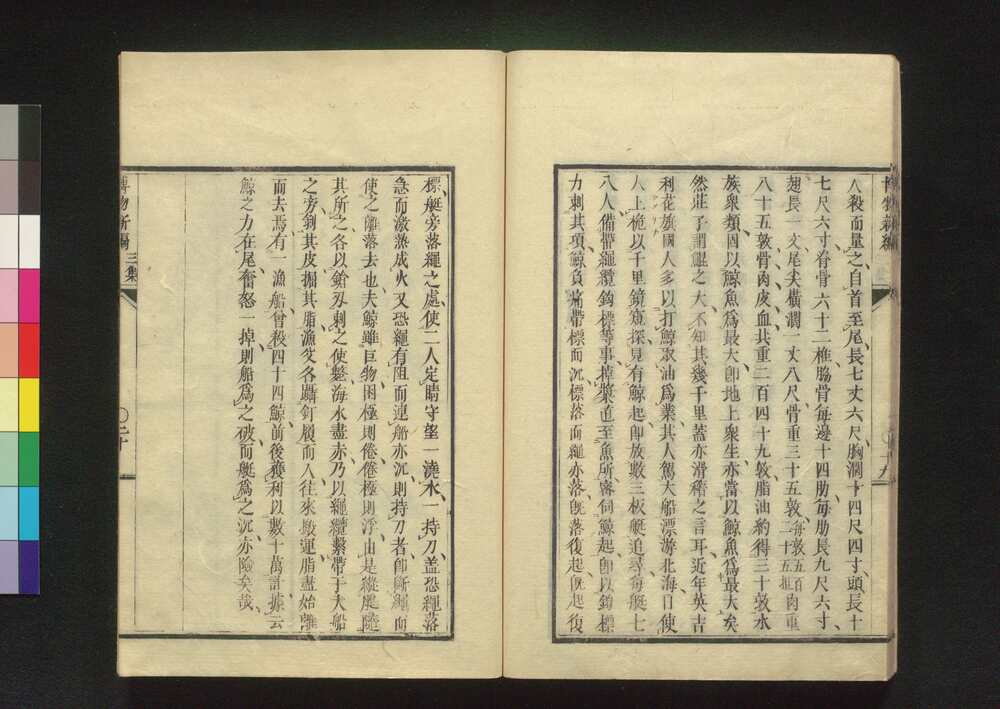 博物新編
人殺而量之自首至尾長七丈六尺胸濶十四尺四寸頭長十
七尺六寸脊骨六十二椎脇骨每邊十四肋每肋長九尺六寸
翅長一丈尾尖橫濶一丈八尺骨重三十五敦每敦五百二十五觔肉重
八十五敦骨肉皮血共重二百四十九敦脂油約得三十敦水
族衆類固以鯨魚爲最大卽地上衆生亦當以鯨魚爲最大矣
然莊子謂鯤之大不知其幾千里蓋亦滑稽之言耳近年英吉
利花旗國人多以打鯨取油爲業其人駕大船漂游北海口使
人上桅以千里鏡窺探見有鯨起卽放數三板艇追尋每艇七
八人備帶繩纜鈎標等事掉槳直至魚所審伺鯨起卽以鎗標
力刺其項鯨負痛帶標而沉標落而繩亦落旣落復起旣起復
十九
標艇旁落繩之處使二人定睛守望一澆水一持刀蓋恐繩落
急而激熱成火又恐繩有阻而連船亦沉則持刀者卽斷繩而
使之離落去也夫鯨雖巨物困極則倦倦極則浮由是縱艇隨
其所之各以鎗刄刺之使斃海水盡赤乃以繩纜繫帶于大船
之旁剝其皮掘其脂漁父各躡釘履而入往來搬運脂盡始離
而去焉有一漁船曾殺四十四鯨前後獲利以數十萬計據云
鯨之力在尾奮怒一掉則船爲之破而艇爲之沉亦險矣哉
博物新編
三集
二十